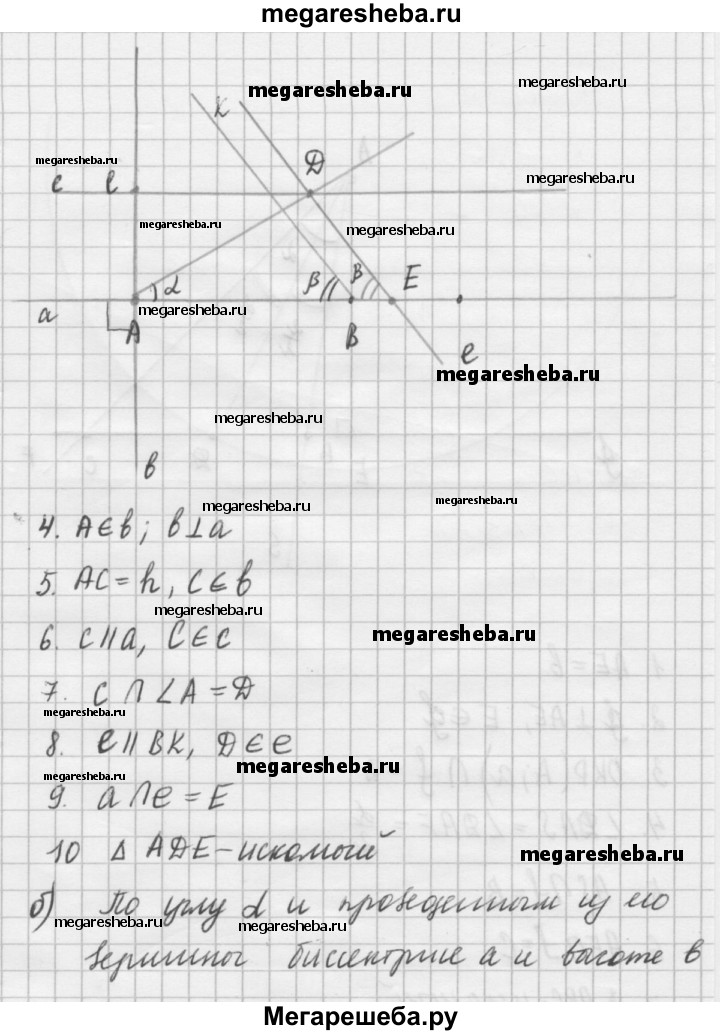 megaresheba.ru
K
megaresheba.ru
megaresheba.ru
megaresheba.ru
Д
megaresheba.ru
c
megaresheba.ru
megaresheba.ru
β
β
E
α
megaresheba.ru
a
A
B
e
megaresheba.ru
megaresheba.ru
в
megaresheba.ru
megaresheba.ru
4. A∈b; b⊥a
5. AC=h, C∈b
megaresheba.ru
6. c∥a, C∈c
megaresheba.ru
7. c∩∠A=Д
megaresheba.ru
8. e∥BK, Д∈e
megaresheba.ru
megaresheba.ru
9. a∩e=E
10 Δ AДE - искомый
megaresheba.ru
б) По углу α и проведенным из его
megaresheba.ru
megaresheba.ru
вершины биссектрисе a и высоте в
Мегарешеба.ру